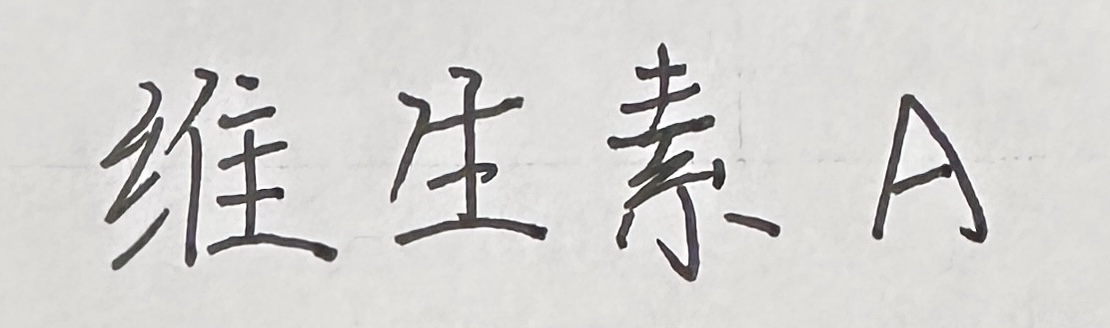 维生素A